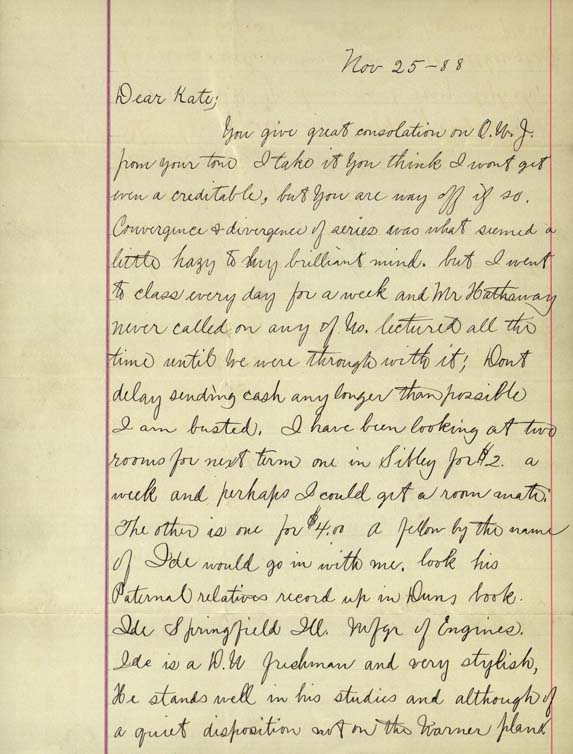 Nov 25-88
Dear Kate;
You give great consolation on O.W.J.
from your tone I take it You think I wont get
even a creditable, but You are way off if so.
Convergence & divergence of series was what seemed a
little hazy to my brilliant mind. but I went
to class every day for a week and Mr Hathaway
never called on any of Us. lectured all the
time until We were through with it; Dont
delay sending cash any longer than possible
I am busted. I have been looking at two
rooms for next term one in Sibley for $2. a
week and perhaps I could get a room mate.
The other is one for $4.00 a fellow by the name
of Ide would go in with me. look his
Paternal relatives record up in Duns book.
Ide Springfield Ill. Mfgr of Engines.
Ide is a D.U freshman and very stylish,
He stands well in his studies and although of
a quiet disposition not on the Warner plan.